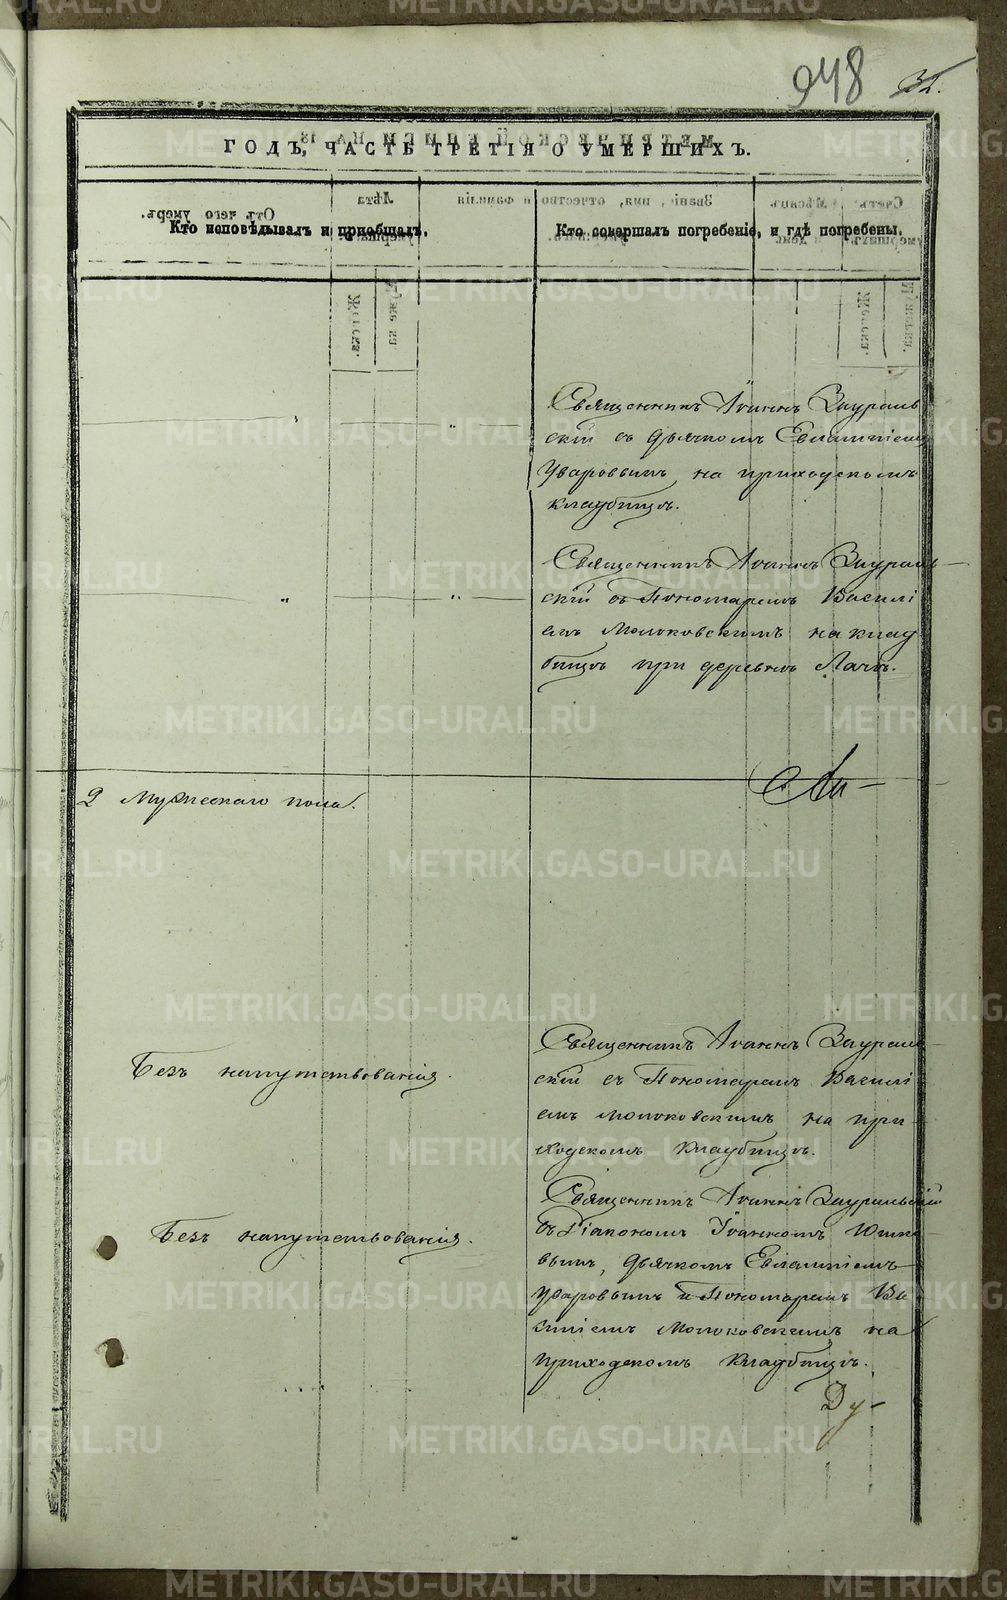 948 32.
ГОДЪ, ЧАСТЬ ТРЕТІЯ О УМЕРШИХЪ.
Кто исповѣдывалъ и пріобщалъ.
Кто совершалъ погребеніе, и гдѣ погребены.
Священникъ Іоаннъ Заураль
скій съ дьячкомъ Евлампіемъ
Уваровымъ на приходскомъ
кладбищѣ.
Священникъ Іоаннъ Заураль-
скій съ Пономаремъ Василі
емъ Молоковскимъ на клад
бищѣ при деревнѣ Лачѣ.
2 Мужескаго пола.
Безъ напутствованія.
Священникъ Іоаннъ Заураль-
скій съ Пономаремъ Василі
емъ Молоковскимъ на при
ходскомъ кладбищѣ.
Безъ напутствованія.
Священникъ Іоаннъ Зауральскій
съ Діакономъ Іоанномъ Юшко-
вымъ, дьячкомъ Евлампіемъ
Уваровымъ и Пономаремъ Ва
силіемъ Молоковскимъ на
приходскомъ кладбищѣ.
Ду-
METRIKI.GASO-URAL.RU